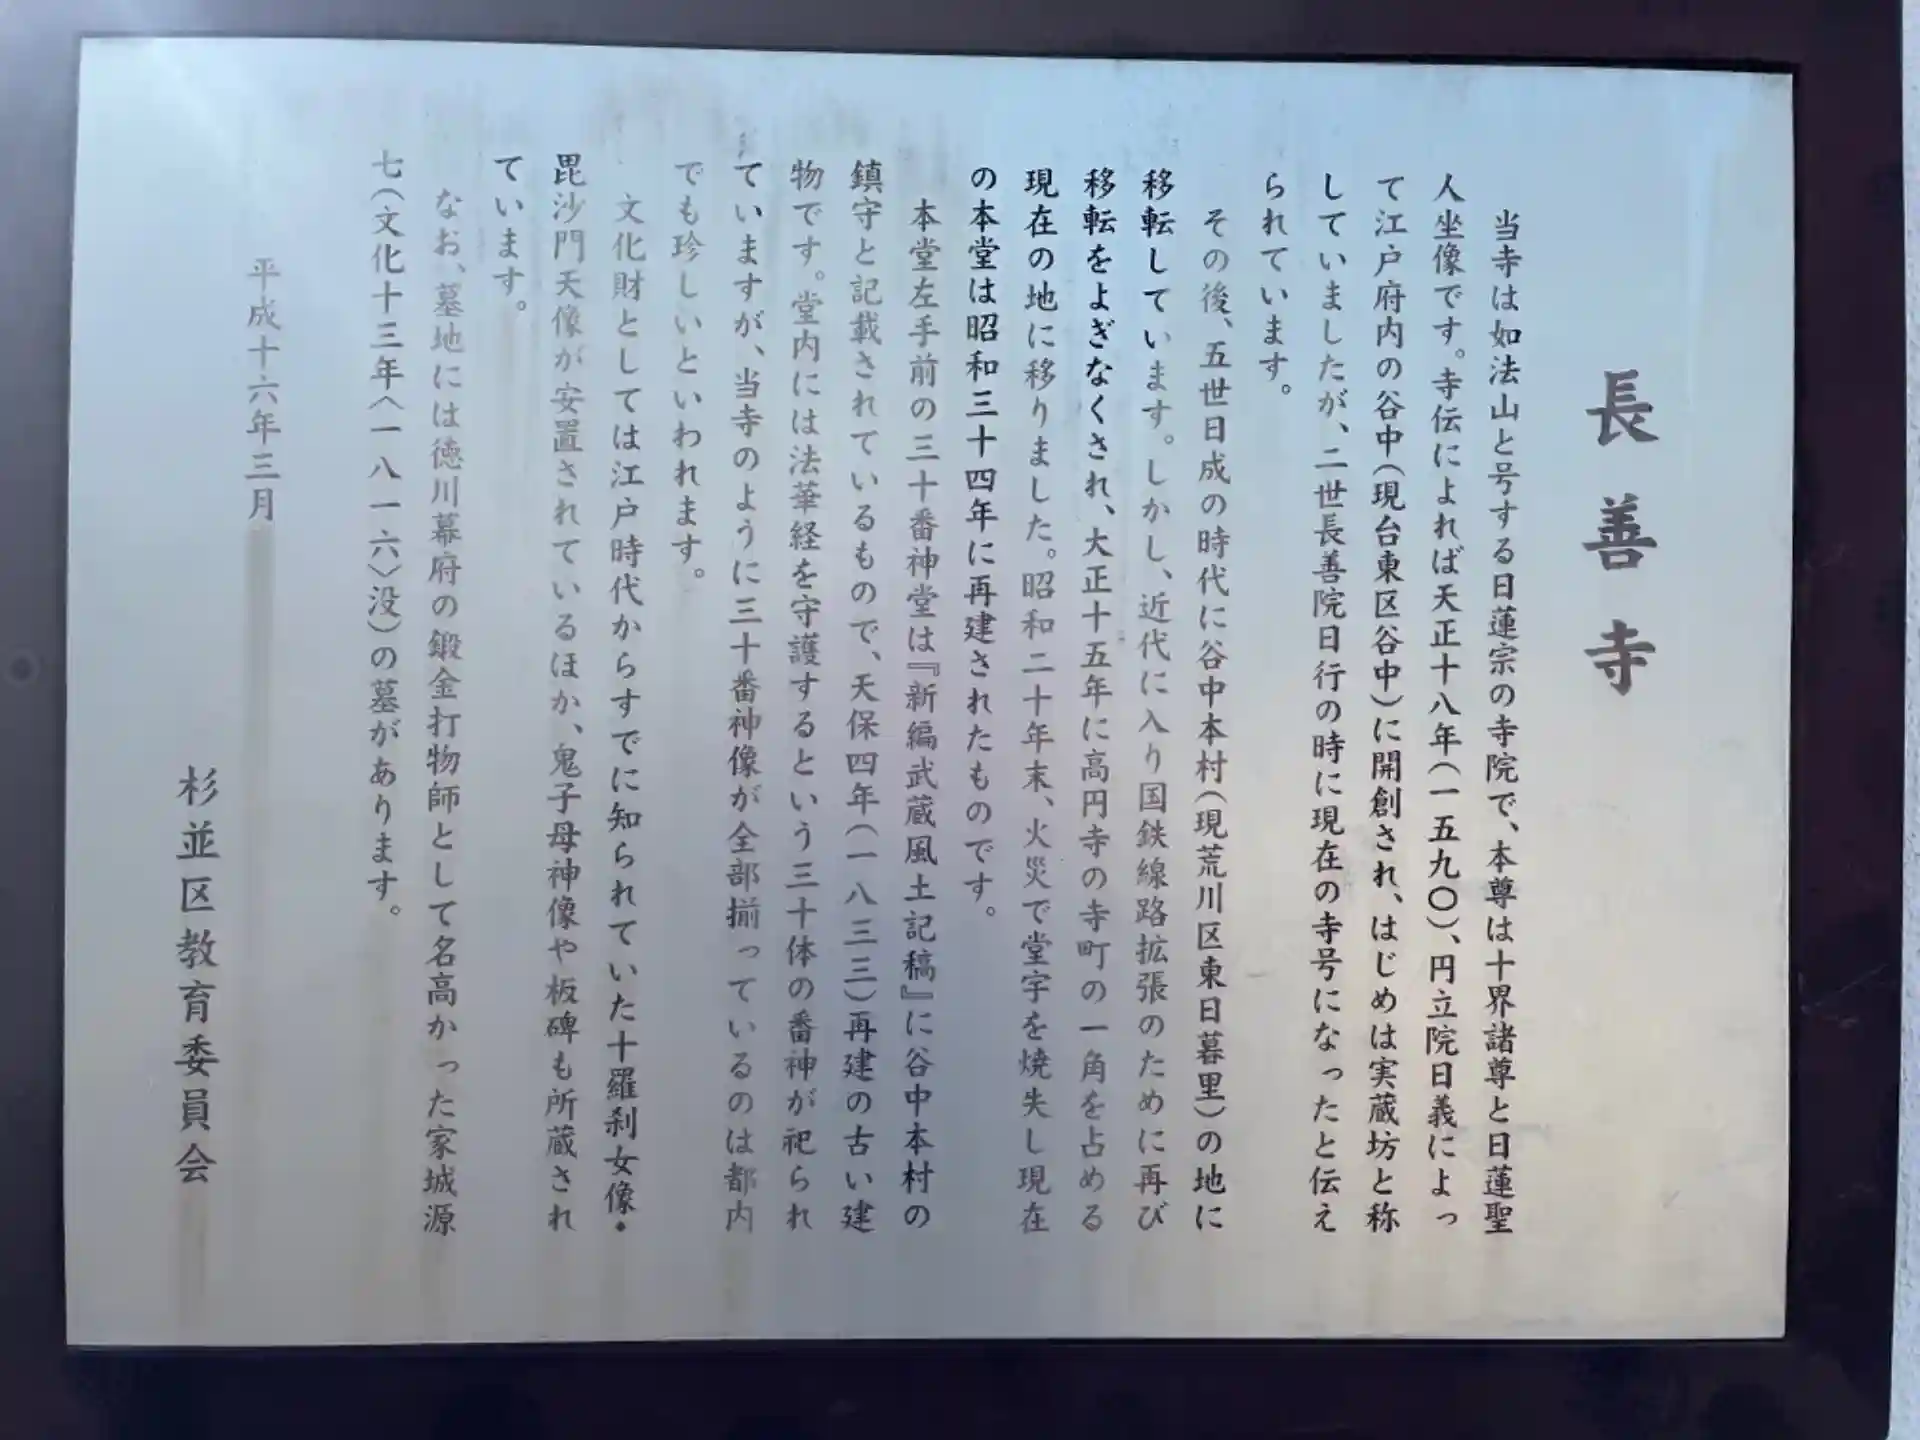 長善寺
当寺は如法山と号する日蓮宗の寺院で、本尊は十界諸尊と日蓮聖
人坐像です。寺伝によれば天正十八年(一五九〇)、円立院日義によっ
て江戸府内の谷中(現台東区谷中)に開創され、はじめは実蔵坊と称
していましたが、二世長善院日行の時に現在の寺号になったと伝え
られています。
その後、五世日成の時代に谷中本村(現荒川区東日暮里)の地に
移転しています。しかし、近代に入り国鉄線路拡張のために再び
移転をよぎなくされ、大正十五年に高円寺の寺町の一角を占める
現在の地に移りました。昭和二十年末、火災で堂宇を焼失し現在
の本堂は昭和三十四年に再建されたものです。
本堂左手前の三十番神堂は『新編武蔵風土記稿』に谷中本村の
鎮守と記載されているもので、天保四年(一八三三)再建の古い建
物です。堂内には法華経を守護するという三十体の番神が祀られ
ていますが、当寺のように三十番神像が全部揃っているのは都内
でも珍しいといわれます。
文化財としては江戸時代からすでに知られていた十羅刹女像・
毘沙門天像が安置されているほか、鬼子母神像や板碑も所蔵され
ています。
なお、墓地には徳川幕府の鍛金打物師として名高かった家城源
七(文化十三年〈一八一六〉没)の墓があります。
平成十六年三月
杉並区教育委員会